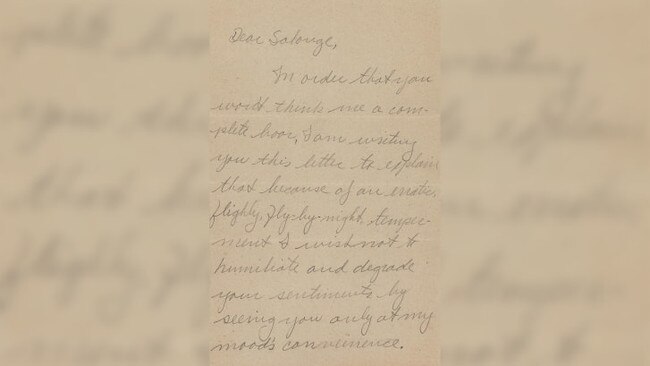 Dear Solange,
In order that you
won't think me a com-
plete boor, I am writing
you this letter to explain
that because of an erratic,
flighly, fly-by-night temper-
ment I wish not to
humiliate and degrade
your sentiments by
seeing you only at my
mood's convienience.